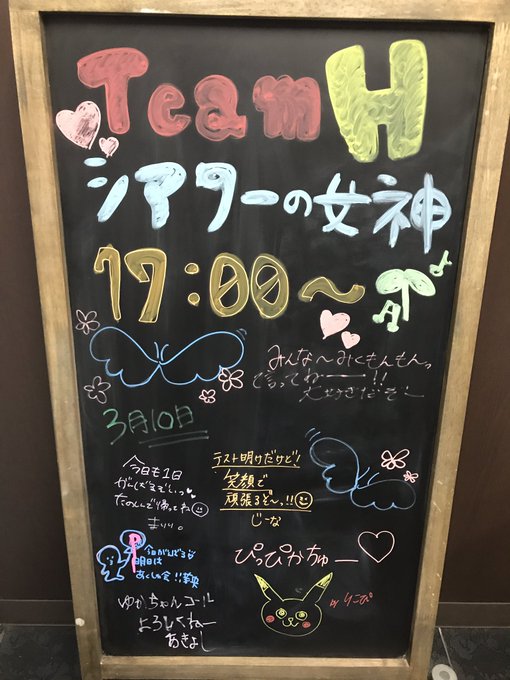 Team H
シアターの女神
17:00〜
みんな〜みくもんもんっ
て言ってねー!!
大好きだぞー
3月10日
今日も1日
がんばるぞいっ
たのしんで帰ってね
まりり。
テスト明けだけど!
笑顔で
頑張るぞ〜っ!!
じーな
今日がんばるぞ
明日は
あくしゅ会!!
ぴっぴかちゅー
by りこぴ
ゆかちゃんコール
よろしくねー
あきよし